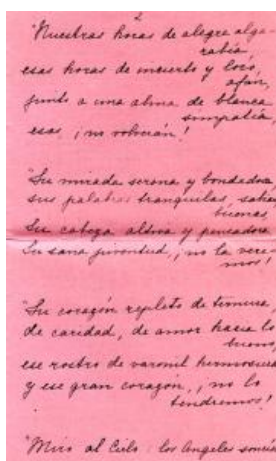 2
"Nuestras horas de alegre alga-
rabía
esas horas de incierto y loco
afán,
junto a una alma de blanca
simpatía,
esas, ¡no volverán!
"Su mirada serena y bondadosa
sus palabras tranquilas, sabias
buenas,
Su cabeza altiva y pensadora
Su sana juventud, ¡no la vere
mos!
"Su corazón repleto de ternura
de caridad, de amor hacia lo
bueno,
ese rostro de varonil hermosura
y ese gran corazon, ¡no lo
tendremos!
"Miro al Cielo: los Angeles